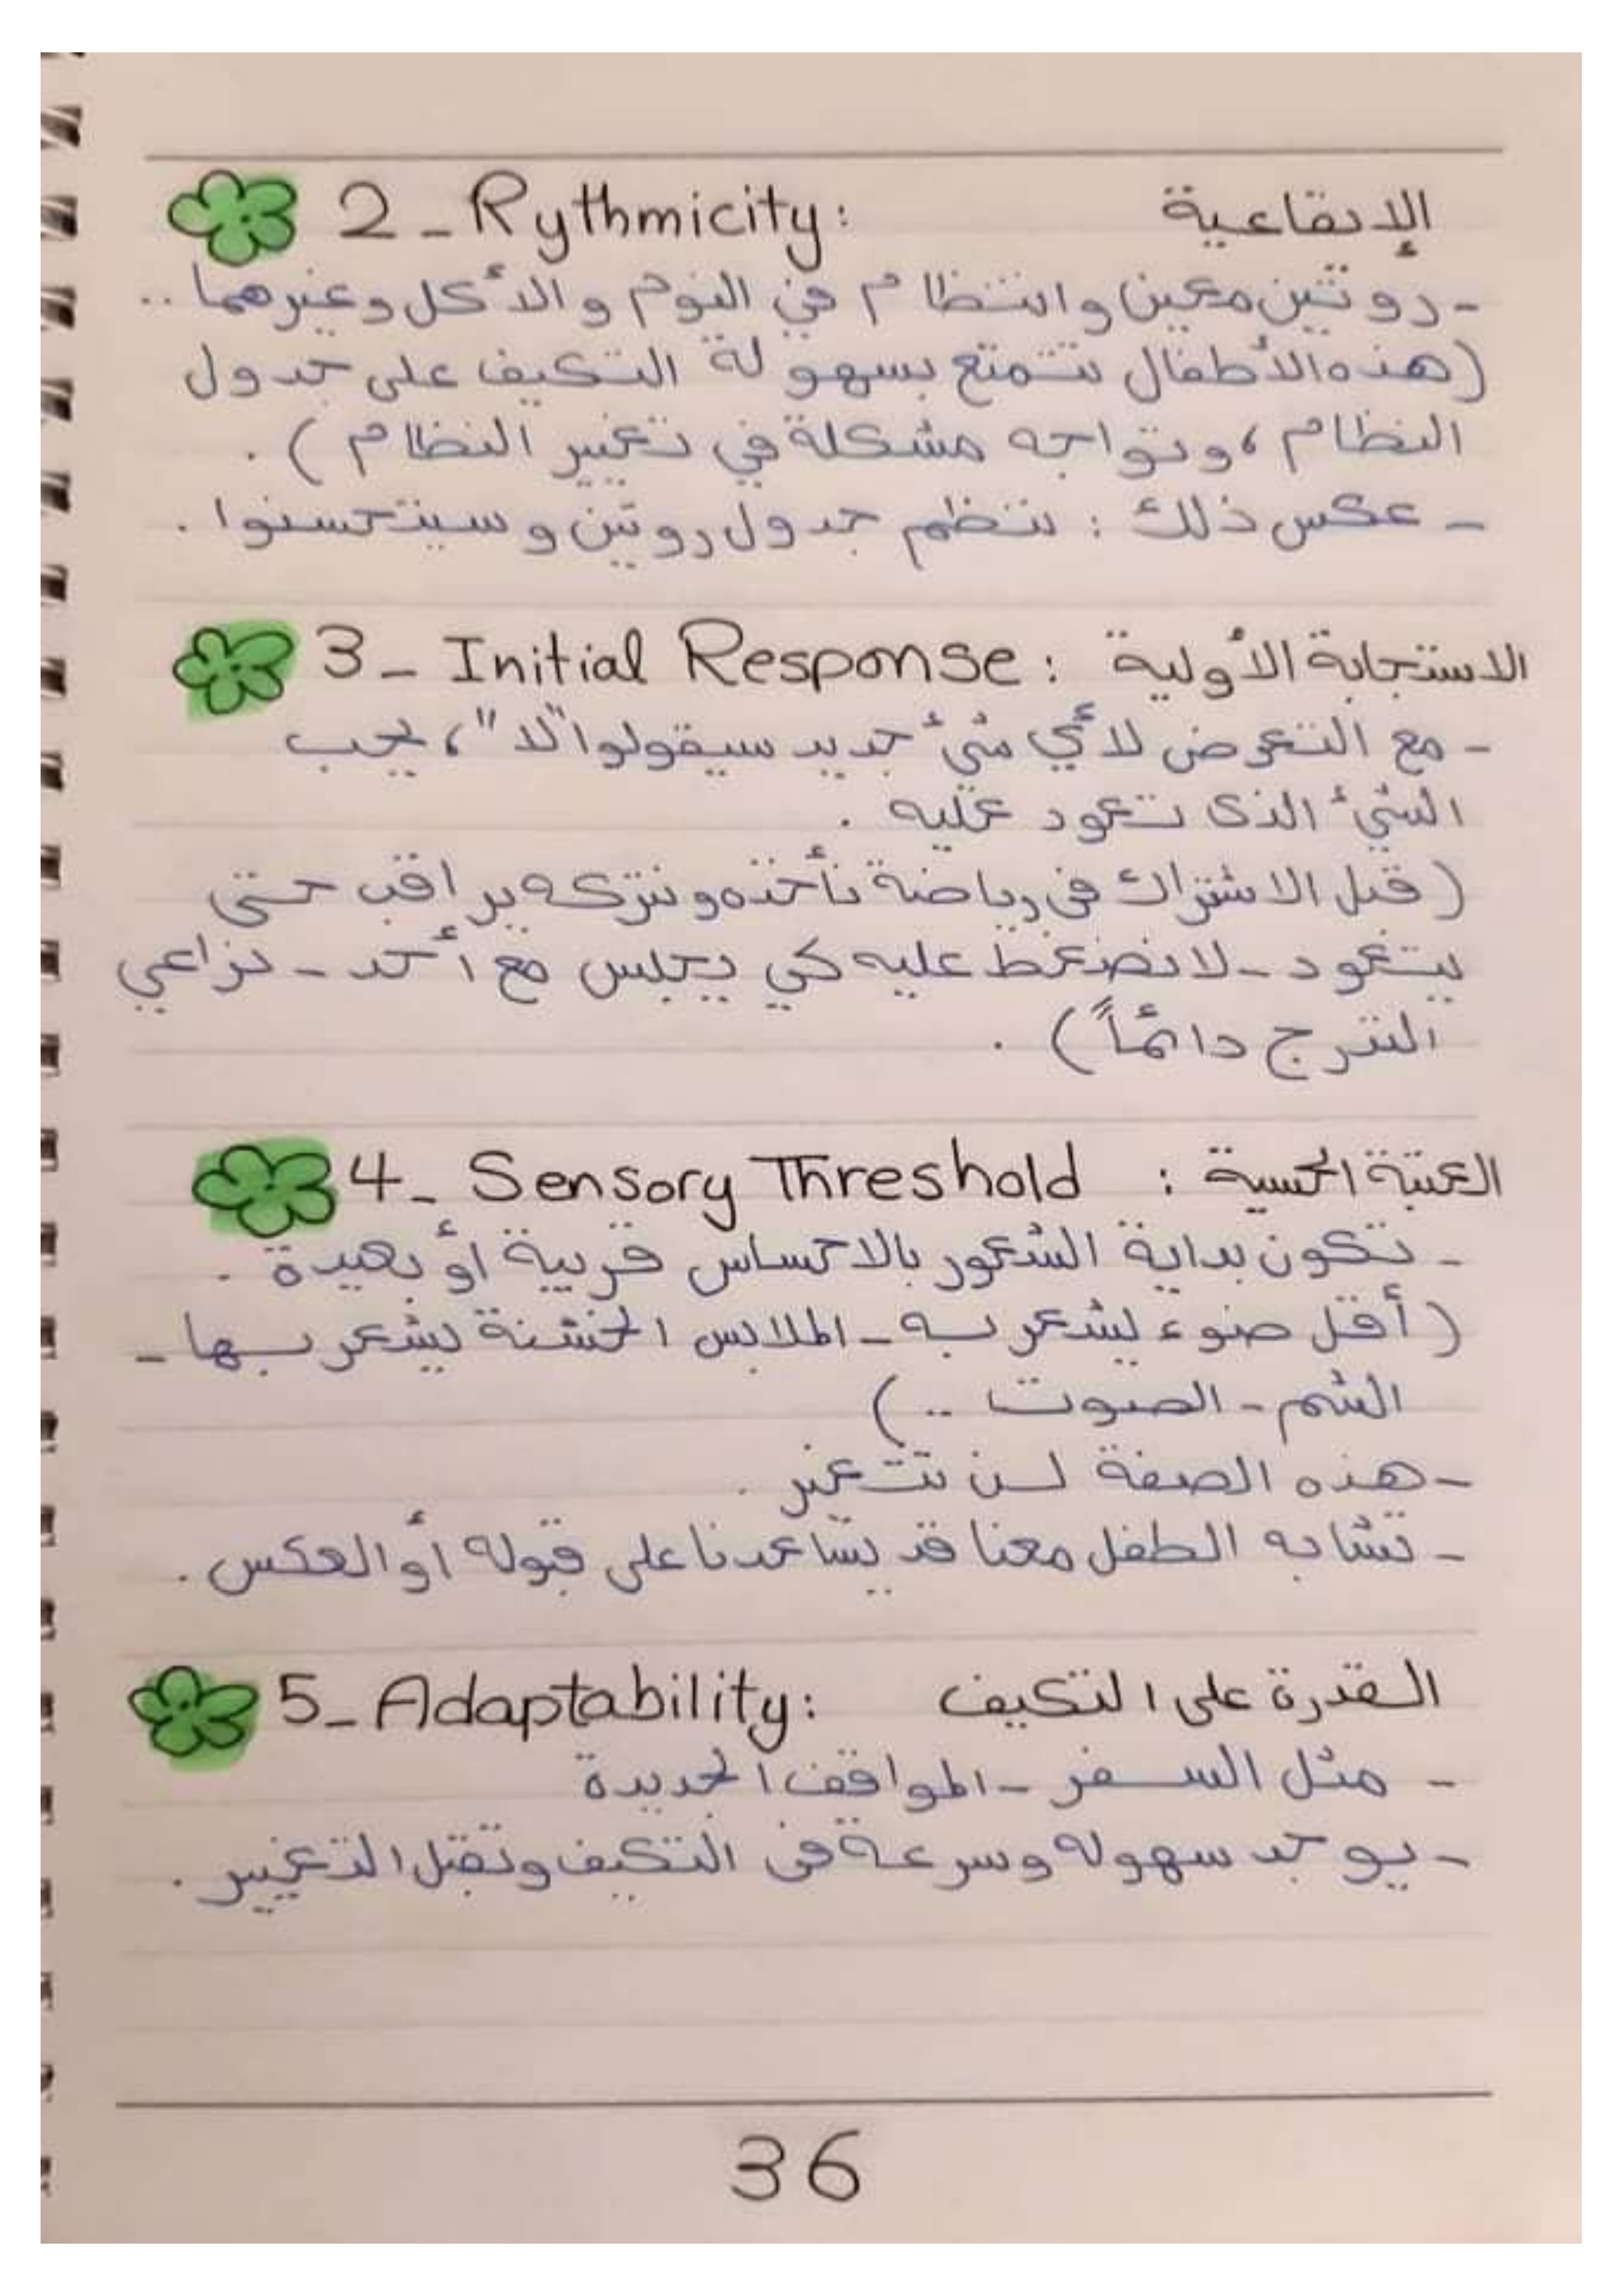 2_ Rythmicity: الإيقاعية
- روتين معين وانتظام في النوم والأكل وغيرهما ..
(هذه الأطفال تتمتع بسهولة التكيف على جدول
النظام ، وتواجه مشكلة في تغيير النظام ) .
- عكس ذلك : ننظم جدول روتين وسيتحسنوا .
3_ Initial Response: الاستجابة الأولية
- مع التعرض لأي شئ جديد سيقولوا "لا" ، يحب
الشئ الذى تعود عليه .
( قبل الاشتراك فى رياضة نأخذه ونتركه يراقب حتى
يتعود - لا نضغط عليه كي يجلس مع أحد - نراعي
التدرج دائماً ) .
4_ Sensory Threshold : العتبة الحسية
- تكون بداية الشعور بالاحساس قريبة أو بعيدة .
( أقل ضوء يشعر به - الملابس الخشنة يشعر بها -
الشم - الصوت .. )
- هذه الصفة لن تتغير .
- تشابه الطفل معنا قد يساعدنا على قبوله أو العكس .
5_ Adaptability: القدرة على التكيف
- مثل السفر - المواقف الجديدة
- يوجد سهولة وسرعة فى التكيف وتقبل التغيير .
36